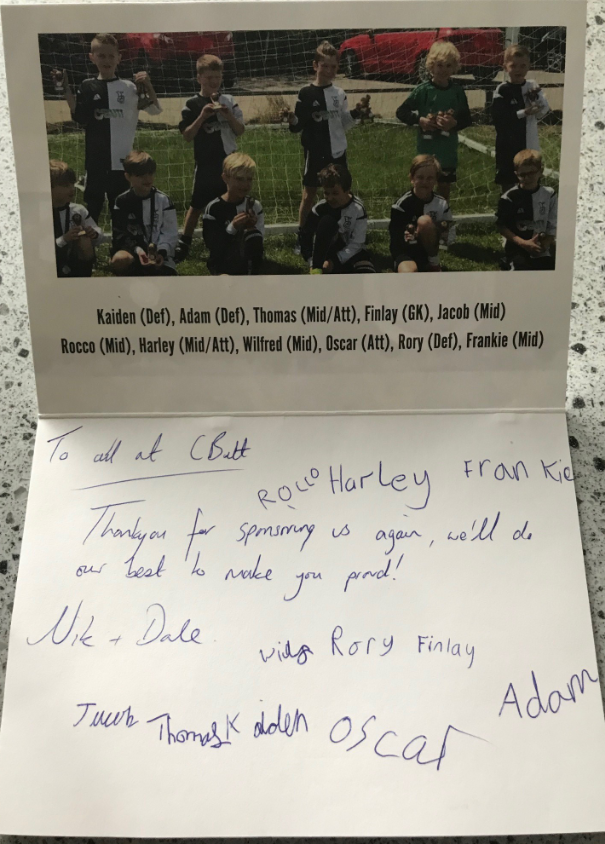 Kaiden (Def), Adam (Def), Thomas (Mid/Att), Finlay (GK), Jacob (Mid)
Rocco (Mid), Harley (Mid/Att), Wilfred (Mid), Oscar (Att), Rory (Def), Frankie (Mid)
To all at CButt
Rocco Harley Frankie
Thankyou for sponsoring us again, we'll do
our best to make you proud!
Nik + Dale
Rory Finlay
Adam
Jacob Thomas Kaiden Oscar